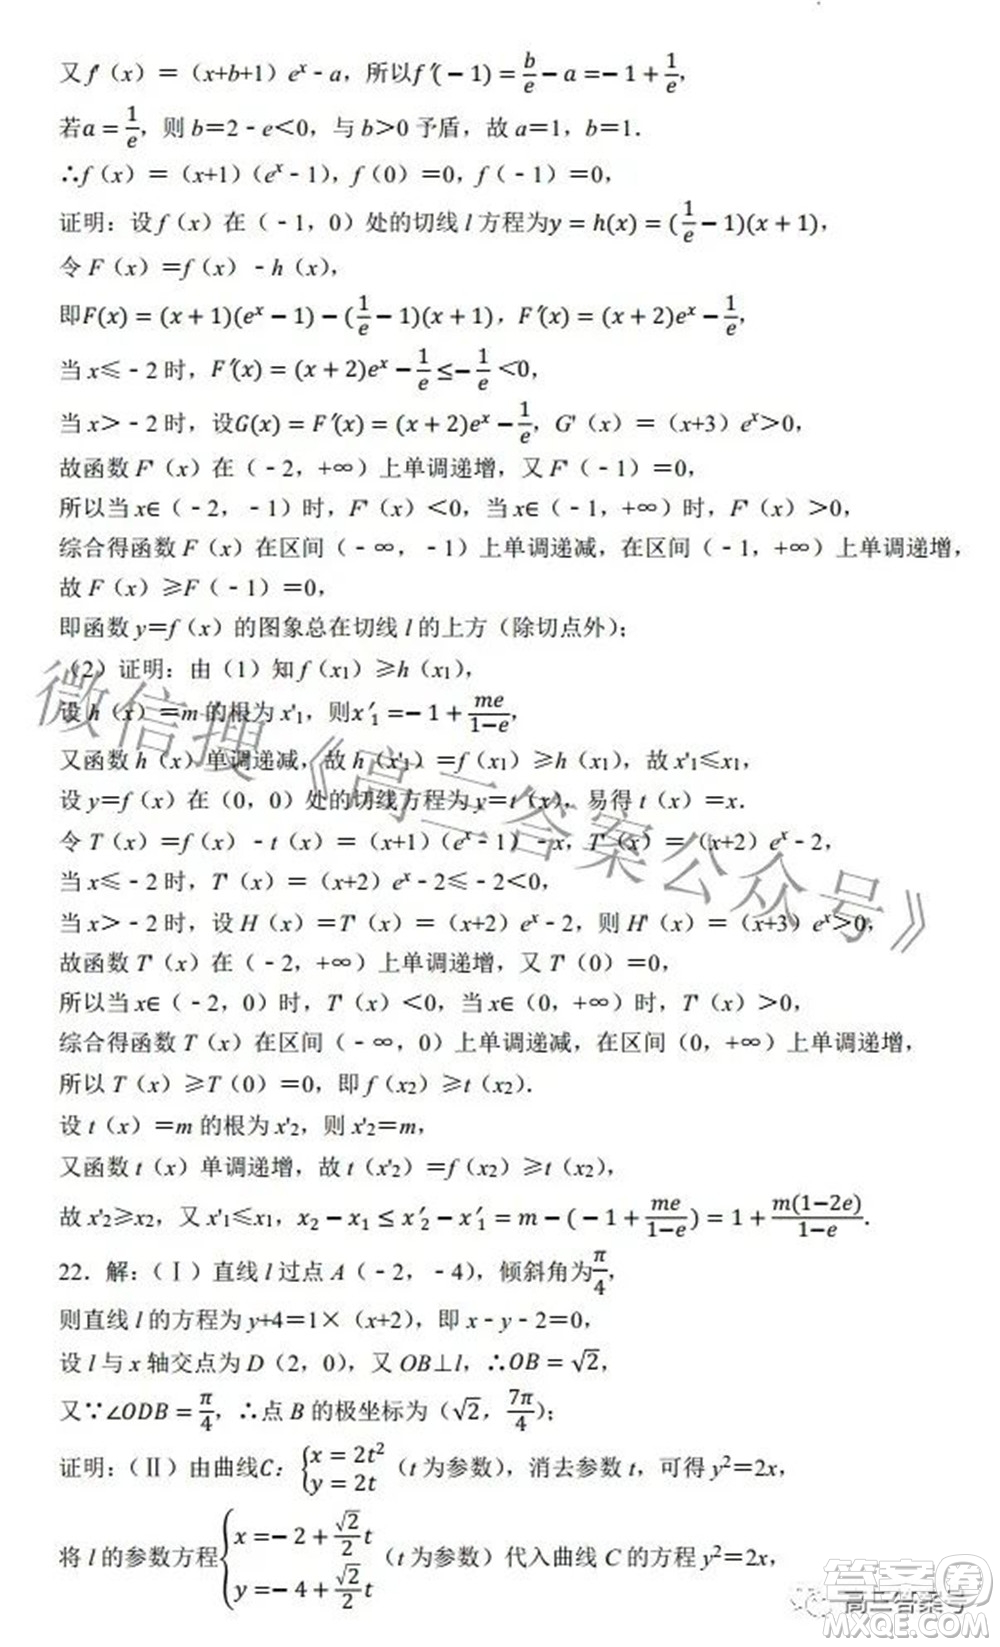 又 f'（x）＝（x+b+1）eˣ﹣a，所以f′(﹣1)=b/e﹣a=﹣1+1/e，
若a=1/e，则 b＝2﹣e＜0，与 b＞0 予盾，故 a＝1，b＝1．
∴f（x）＝（x+1）（eˣ﹣1），f（0）＝0，f（﹣1）＝0，
证明：设 f（x）在（﹣1，0）处的切线 l 方程为y=h(x)=(1/e﹣1)(x+1)，
令 F（x）＝f（x）﹣h（x），
即F(x)=(x+1)(eˣ﹣1)﹣(1/e﹣1)(x+1)，F′(x)=(x+2)eˣ﹣1/e，
当 x≤﹣2 时，F′(x)=(x+2)eˣ﹣1/e≤﹣1/e＜0，
当 x＞﹣2 时，设G(x)=F′(x)=(x+2)eˣ﹣1/e，G'（x）＝（x+3）eˣ＞0，
故函数 F'（x）在（﹣2，+∞）上单调递增，又 F'（﹣1）＝0，
所以当 x∈（﹣2，﹣1）时，F'（x）＜0，当 x∈（﹣1，+∞）时，F'（x）＞0，
综合得函数 F（x）在区间（﹣∞，﹣1）上单调递减，在区间（﹣1，+∞）上单调递增，
故 F（x）≥F（﹣1）＝0，
即函数 y＝f（x）的图象总在切线 l 的上方（除切点外）；
（2）证明：由（1）知 f（x₁）≥h（x₁），
设 h（x）＝m 的根为 x'₁，则x′₁=﹣1+me/(1﹣e)，
又函数 h（x）单调递减，故 h（x'₁）＝f（x₁）≥h（x₁），故 x'₁≤x₁，
设 y＝f（x）在（0，0）处的切线方程为 y＝t（x），易得 t（x）＝x．
令 T（x）＝f（x）﹣t（x）＝（x+1）（eˣ﹣1）﹣x，T'（x）＝（x+2）eˣ﹣2，
当 x≤﹣2 时，T'（x）＝（x+2）eˣ﹣2≤﹣2＜0，
当 x＞﹣2 时，设 H（x）＝T'（x）＝（x+2）eˣ﹣2，则 H'（x）＝（x+3）eˣ＞0，
故函数 T'（x）在（﹣2，+∞）上单调递增，又 T'（0）＝0，
所以当 x∈（﹣2，0）时，T'（x）＜0，当 x∈（0，+∞）时，T'（x）＞0，
综合得函数 T（x）在区间（﹣∞，0）上单调递减，在区间（0，+∞）上单调递增，
所以 T（x）≥T（0）＝0，即 f（x₂）≥t（x₂）．
设 t（x）＝m 的根为 x'₂，则 x'₂＝m，
又函数 t（x）单调递增，故 t（x'₂）＝f（x₂）≥t（x₂），
故 x'₂≥x₂，又 x'₁≤x₁，x₂﹣x₁≤x′₂﹣x′₁=m﹣(﹣1+me/(1﹣e))=1+m(1﹣2e)/(1﹣e)．
22．解：（Ⅰ）直线 l 过点 A（﹣2，﹣4），倾斜角为π/4，
则直线 l 的方程为 y+4＝1×（x+2），即 x﹣y﹣2＝0，
设 l 与 x 轴交点为 D（2，0），又 OB⊥l，∴OB=√2，
又∵∠ODB=π/4，∴点 B 的极坐标为（√2，7π/4）；
证明：（Ⅱ）由曲线C：{x=2t² y=2t（t 为参数），消去参数 t，可得 y²＝2x，
将 l 的参数方程{x=﹣2+√2/2 t y=﹣4+√2/2 t（t 为参数）代入曲线 C 的方程 y²＝2x，
微信搜《高三答案公众号》
高三答案号
答案圈
MXQE.COM